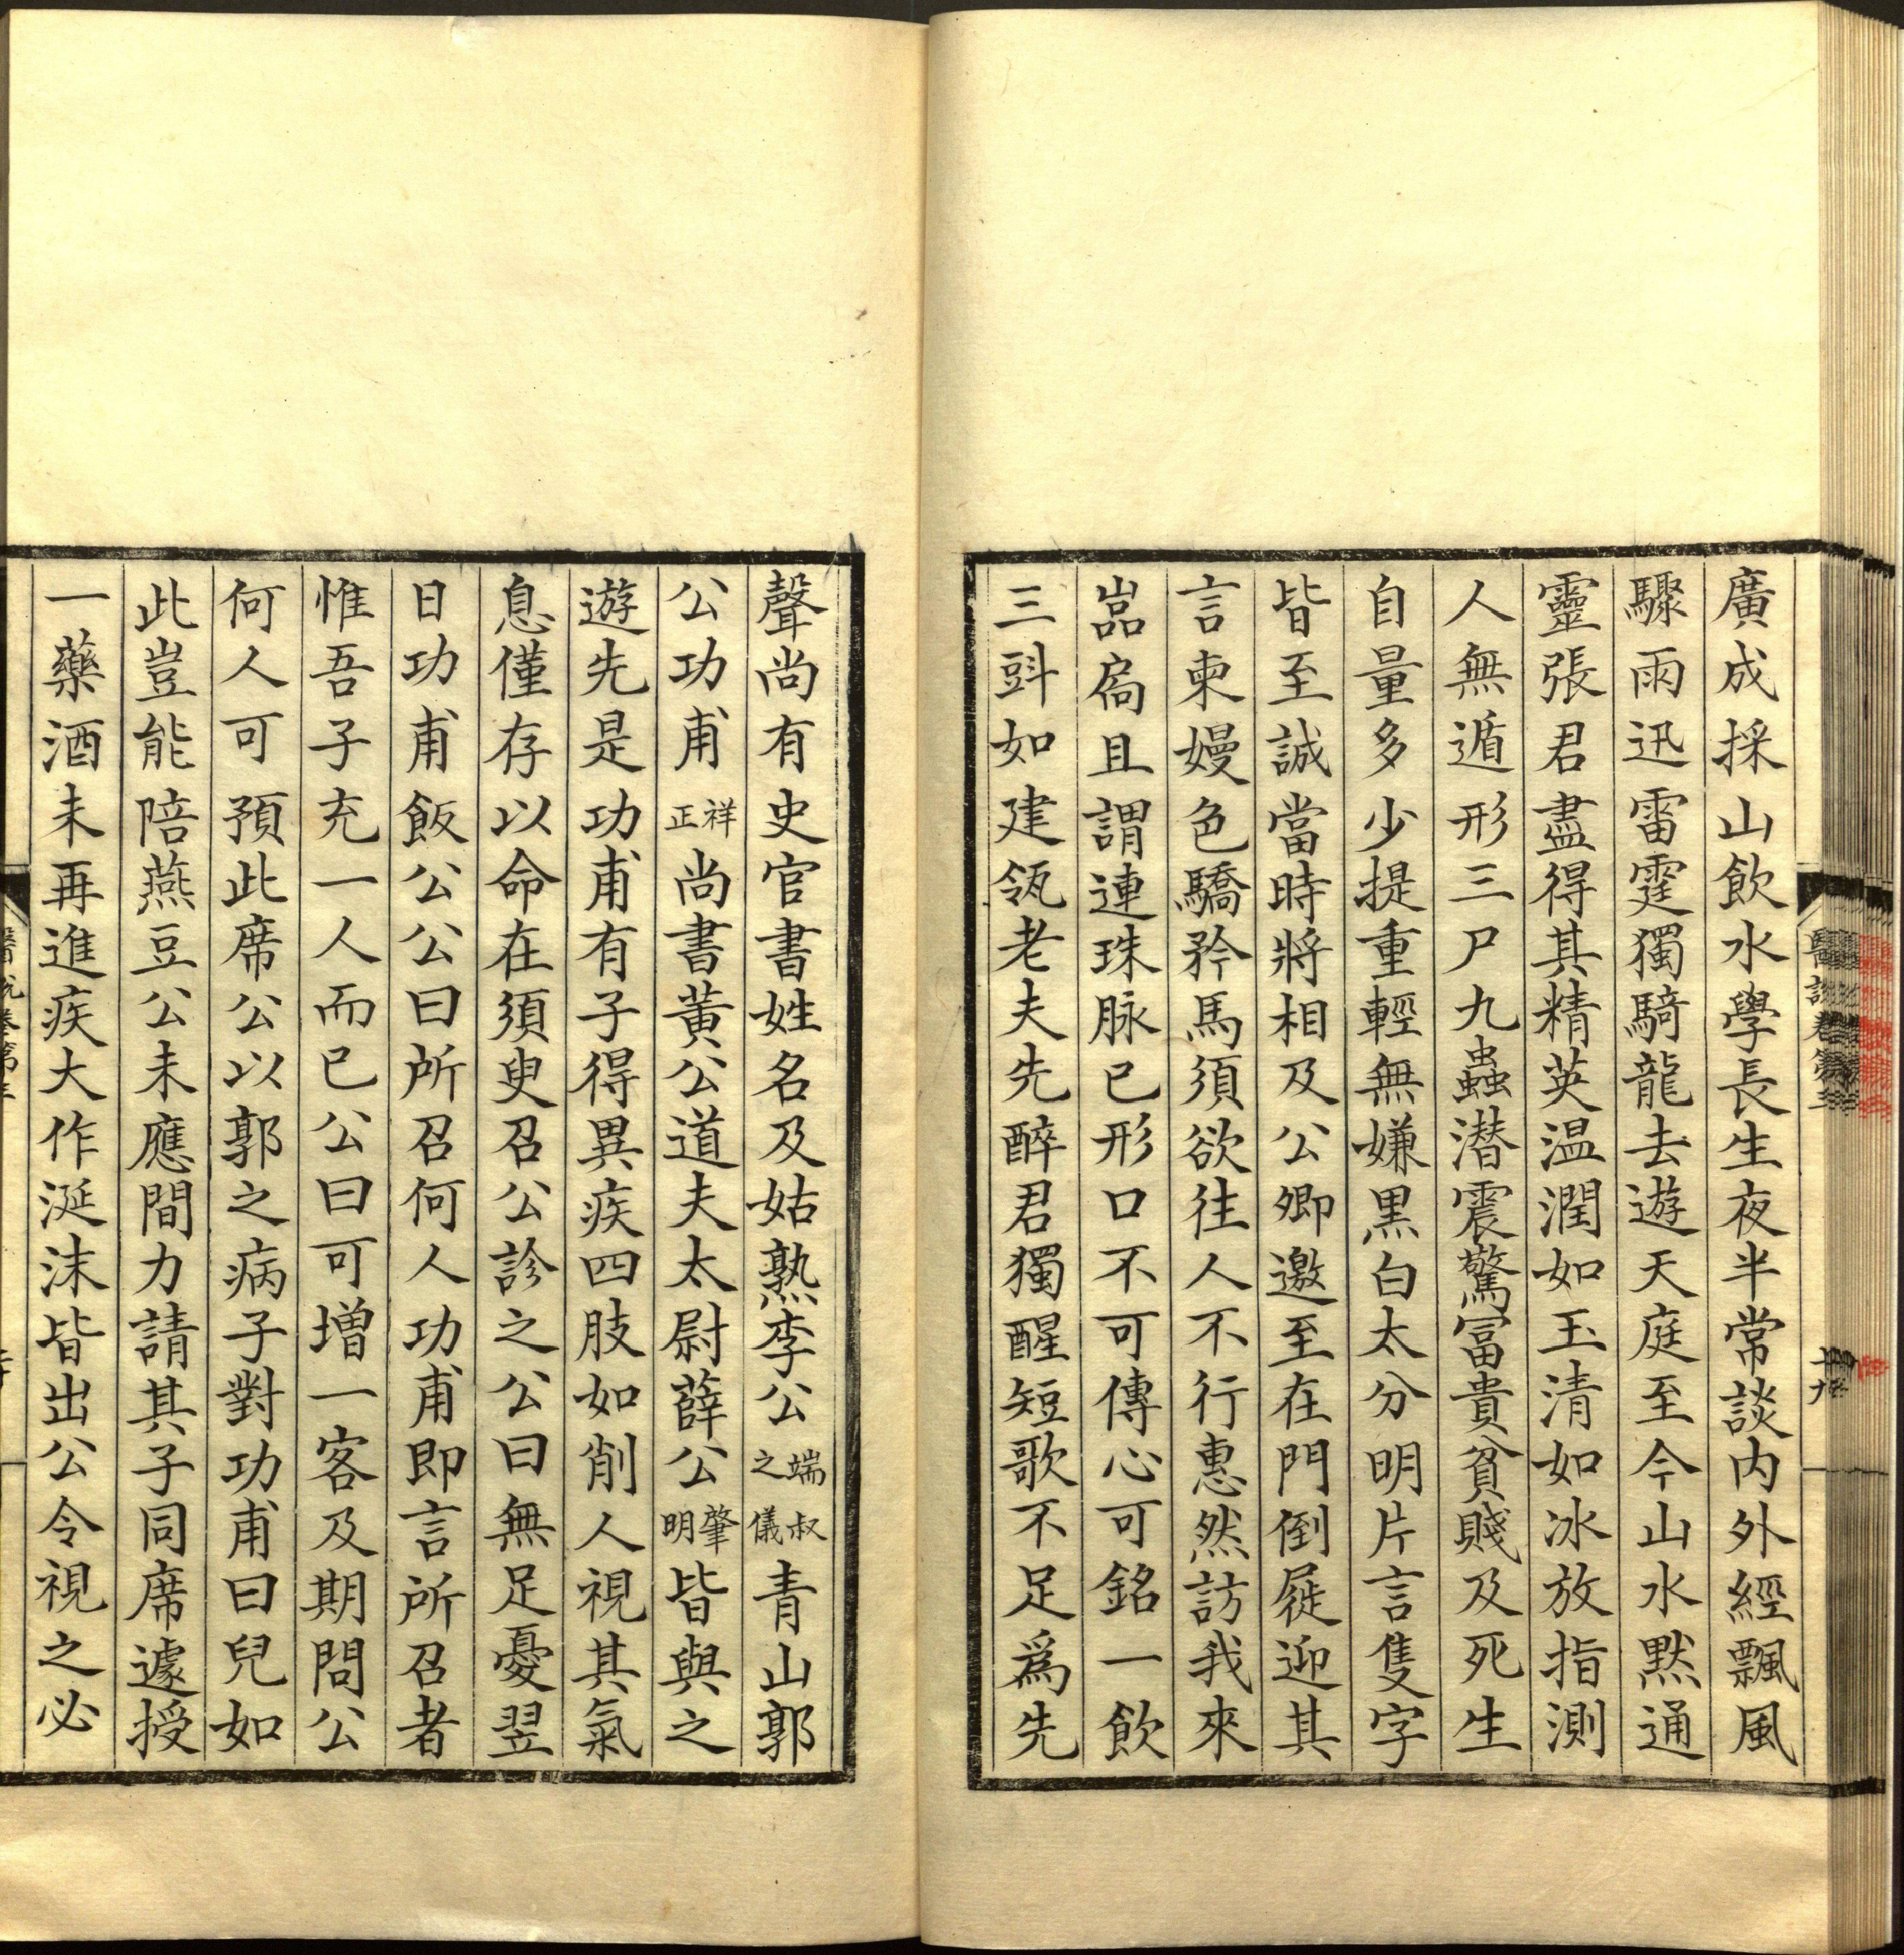 廣成採山飲水學長生夜半常談内外經飄風
驟雨迅雷霆獨騎龍去遊天庭至今山水黙通
靈張君盡得其精英温潤如玉清如冰放指測
人無遁形三尸九蟲潜震驚冨貴貧賤及死生
自量多少提重輕無嫌黒白太分明片言隻字
皆至誠當時將相及公卿邀至在門倒屣迎其
言柬嫚色驕矜馬須欲往人不行惠然訪我來
嵓扄且謂連珠脉已形口不可傳心可銘一飲
三㪷如建瓴老夫先醉君獨醒短歌不足爲先
聲尚有史官書姓名及姑熟李公端叔之儀青山郭
公功甫祥正尚書黄公道夫太尉薛公肇明皆與之
遊先是功甫有子得異疾四肢如削人視其氣
息僅存以命在須臾召公診之公曰無足憂翌
日功甫飯公公曰所召何人功甫即言所召者
惟吾子充一人而已公曰可增一客及期問公
何人可預此席公以郭之病子對功甫曰兒如
此豈能陪燕豆公未應間力請其子同席遽授
一藥酒未再進疾大作涎沫皆出公令視之必